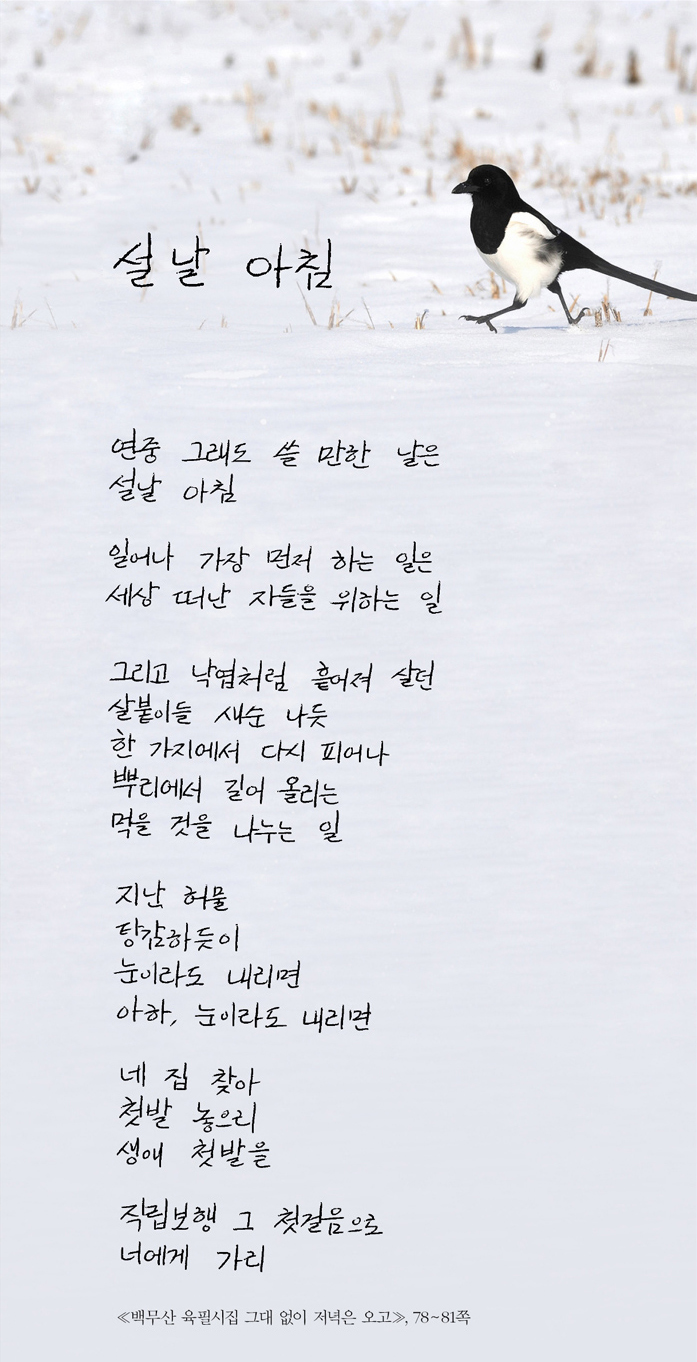 설날 아침
연중 그래도 쓸 만한 날은
설날 아침
일어나 가장 먼저 하는 일은
세상 떠난 자들을 위하는 일
그리고 낙엽처럼 흩어져 살던
살붙이들 새순 나듯
한 가지에서 다시 피어나
뿌리에서 길어 올리는
먹을 것을 나누는 일
지난 허물
탕감하듯이
눈이라도 내리면
아하, 눈이라도 내리면
네 집 찾아
첫발 놓으리
생애 첫발을
직립보행 그 첫걸음으로
너에게 가리
≪백무산 육필시집 그대 없이 저녁은 오고≫, 78~81쪽